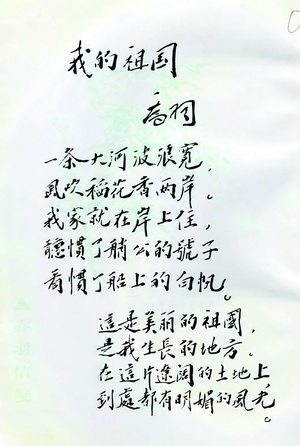 我的祖国
乔羽
一条大河波浪寛，
風吹稻花香两岸。
我家就在岸上住，
聽慣了艄公的號子
看慣了船上的白帆。
這是美丽的祖國，
是我生長的地方。
在這片遼阔的土地上，
到處都有明媚的風光。